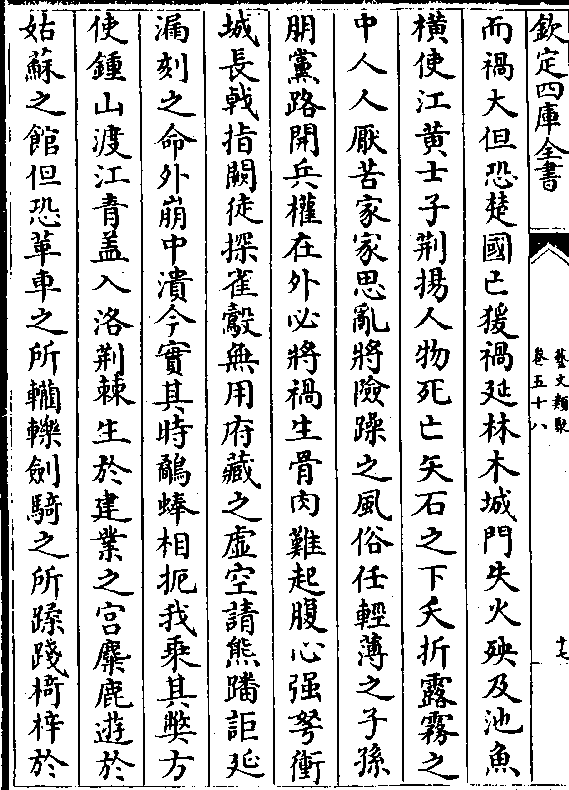 欽定四庫全書
藝文類聚
卷五十八
十七
而禍大但恐楚國亡猨禍延林木城門失火殃及池魚
橫使江黄士子荆揚人物死亡矢石之下夭折露霧之
中人人厭苦家家思亂將險躁之風俗任輕薄之子孫
朋黨路開兵權在外必將禍生骨肉難起腹心强弩衝
城長戟指闕徒探雀鷇無用府藏之虛空請熊蹯詎延
漏刻之命外崩中潰今實其時鷸蜯相扼我乘其獘方
使鍾山渡江青盖入洛荆棘生於建業之宫麋鹿遊於
姑蘇之館但恐革車之所轥轢劍騎之所蹂踐椅梓於